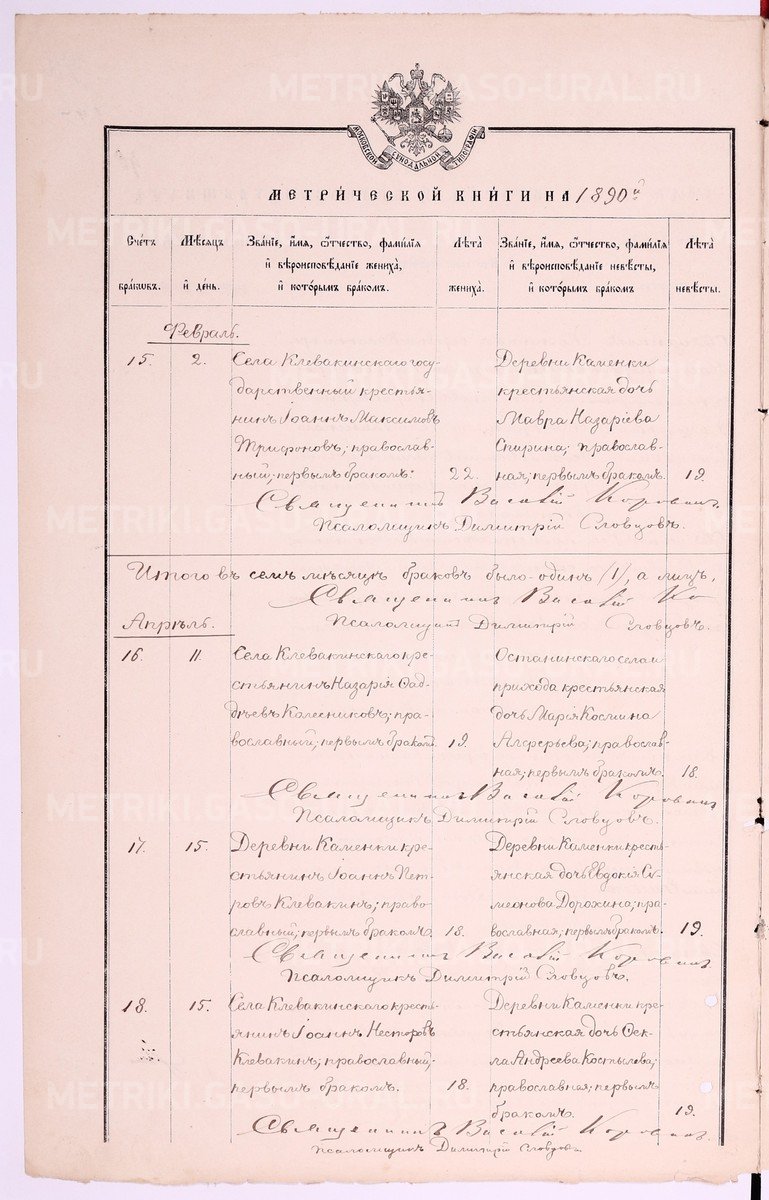 МОСКОВСКОЙ СѴНОДАЛЬНОЙ ТИПОГРАФІИ
МЕТРИ́ЧЕСКОЙ КНИ́ГИ НА 1890й
Сче́тъ бра́кѡвъ.
Мѣ́сяцъ и҆ де́нь.
Зва́нїе, и҆́мѧ, ѻ҆́тчество, фами́лїѧ и҆ вѣроисповѣ́данїе жениха̀, и҆ кото́рымъ бра́комъ.
Лѣ́та жениха̀.
Зва́нїе, и҆́мѧ, ѻ҆́тчество, фами́лїѧ и҆ вѣроисповѣ́данїе невѣ́сты, и҆ кото́рымъ бра́комъ
Лѣ́та невѣ́сты.
Февраль.
15. 2.
Села Клевакинскаго госу-
дарственный крестья-
нинъ Іоаннъ Максимовъ
Трифоновъ; православ-
ный; первымъ бракомъ. 22.
Деревни Каменки
крестьянская дочь
Мавра Назаріева
Спирина; православ-
ная; первымъ бракомъ. 19.
Священникъ Василій Коровинъ.
Псаломщикъ Димитрій Словцовъ.
Итого въ семъ мѣсяцѣ браковъ было-одинъ (1), а лицъ,
Священникъ Василій Ко
Псаломщикъ Димитрій Словцовъ.
Апрѣль.
16. 11.
Села Клевакинскаго кре-
стьянинъ Назарій Фад-
дѣевъ Колесниковъ; пра-
вославный; первымъ бракомъ 19.
Останинскаго села и
прихода крестьянская
дочь Марія Космина
Алферьева; православ-
ная; первымъ бракомъ. 18.
Священникъ Василій Коровинъ
Псаломщикъ Димитрій Словцовъ.
17. 15.
Деревни Каменки кре-
стьянинъ Іоаннъ Пет-
ровъ Клевакинъ; право-
славный; первымъ бракомъ. 18.
Деревни Каменки кресть-
янская дочь Евдокія Си-
меонова Дорохина; пра-
вославная; первымъ бракомъ. 19.
Священникъ Василій Коровинъ
Псаломщикъ Димитрій Словцовъ.
18. 15.
Села Клевакинскаго кресть-
янинъ Іоаннъ Несторовъ
Клевакинъ; православный;
первымъ бракомъ. 18.
Деревни Каменки кре-
стьянская дочь Фек-
ла Андреева Костылева;
православная; первымъ
бракомъ. 19.
Священникъ Василій Коровинъ.
Псаломщикъ Димитрій Словцовъ
METRIKI.GASO-URAL.RU